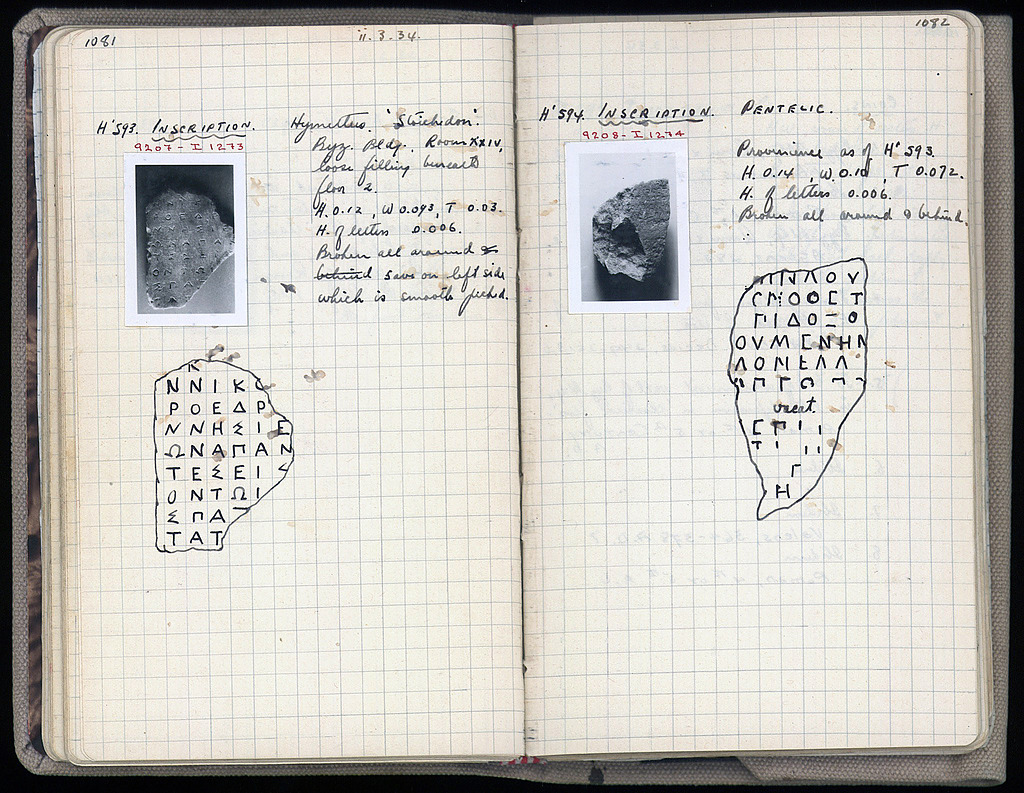 1081
ii.3.34.
H'593. INSCRIPTION. Hymettus. 'Stoichedon'.
9207 - I 1273
Byz. Bldg., Room XXIV,
loose filling beneath
floor 2.
H. 0.12, W 0.093, T 0.03.
H. of letters 0.006.
Broken all around &
behind save on left side
which is smooth picked.
Κ
Ν Ν Ι Κ Ο
Ρ Ο Ε Δ Ρ
Ν Ν Η Σ Ι Ε
Ω Ν Α Π Α Ν
Τ Ε Σ Ε Ι
Ο Ν Τ Ω Ι
Σ Π Α
Τ Α Τ
1082
H'594. INSCRIPTION. PENTELIC.
9208 - I 1274
Provenience as of H'593.
H. 0.14, W 0.10, T 0.072.
H. of letters 0.006.
Broken all around & behind.
Ο Θ Ε Τ
Γ Ι Δ Ο Ξ Ο
Ο Υ Μ Ε Ν Η Ν
Λ Ο Ν Ε Λ Λ
vacat.
Ε Γ Ι Ι
Τ Ι Ι Ι
Γ
Η